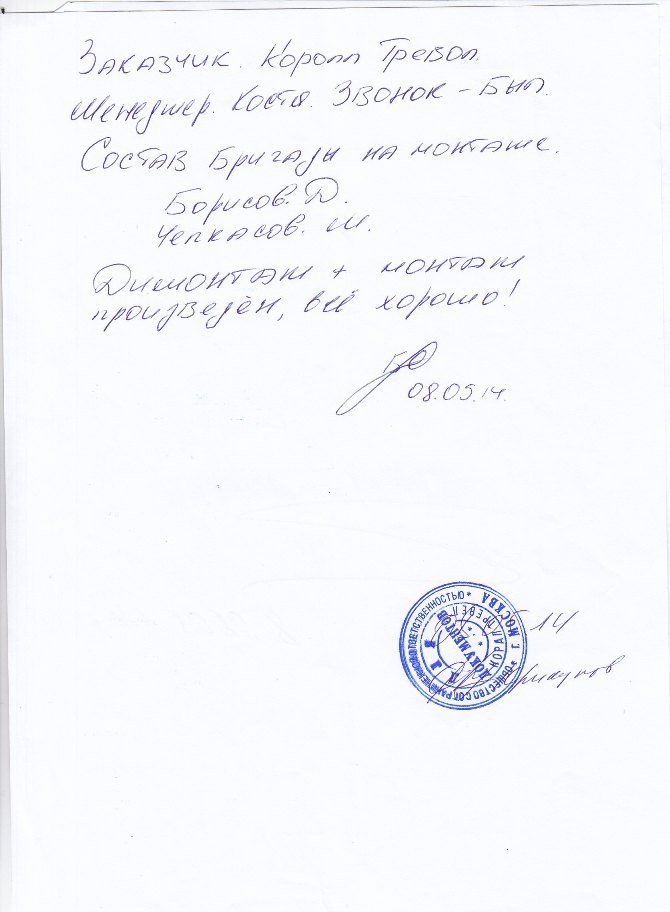 Заказчик. Коралл Тревол.
Менеджер. Костя. Звонок - Был.
Состав Бригады на монтаже.
Борисов. Д.
Черкасов. М.
Димонтаж + монтаж
произведён, всё хорошо!
08.05.14.
14
ОБЩЕСТВО С ОГРАНИЧЕННОЙ ОТВЕТСТВЕННОСТЬЮ * г. МОСКВА *
КОРАЛЛ ТРЕВЕЛ
ДЛЯ
ДОКУМЕНТОВ